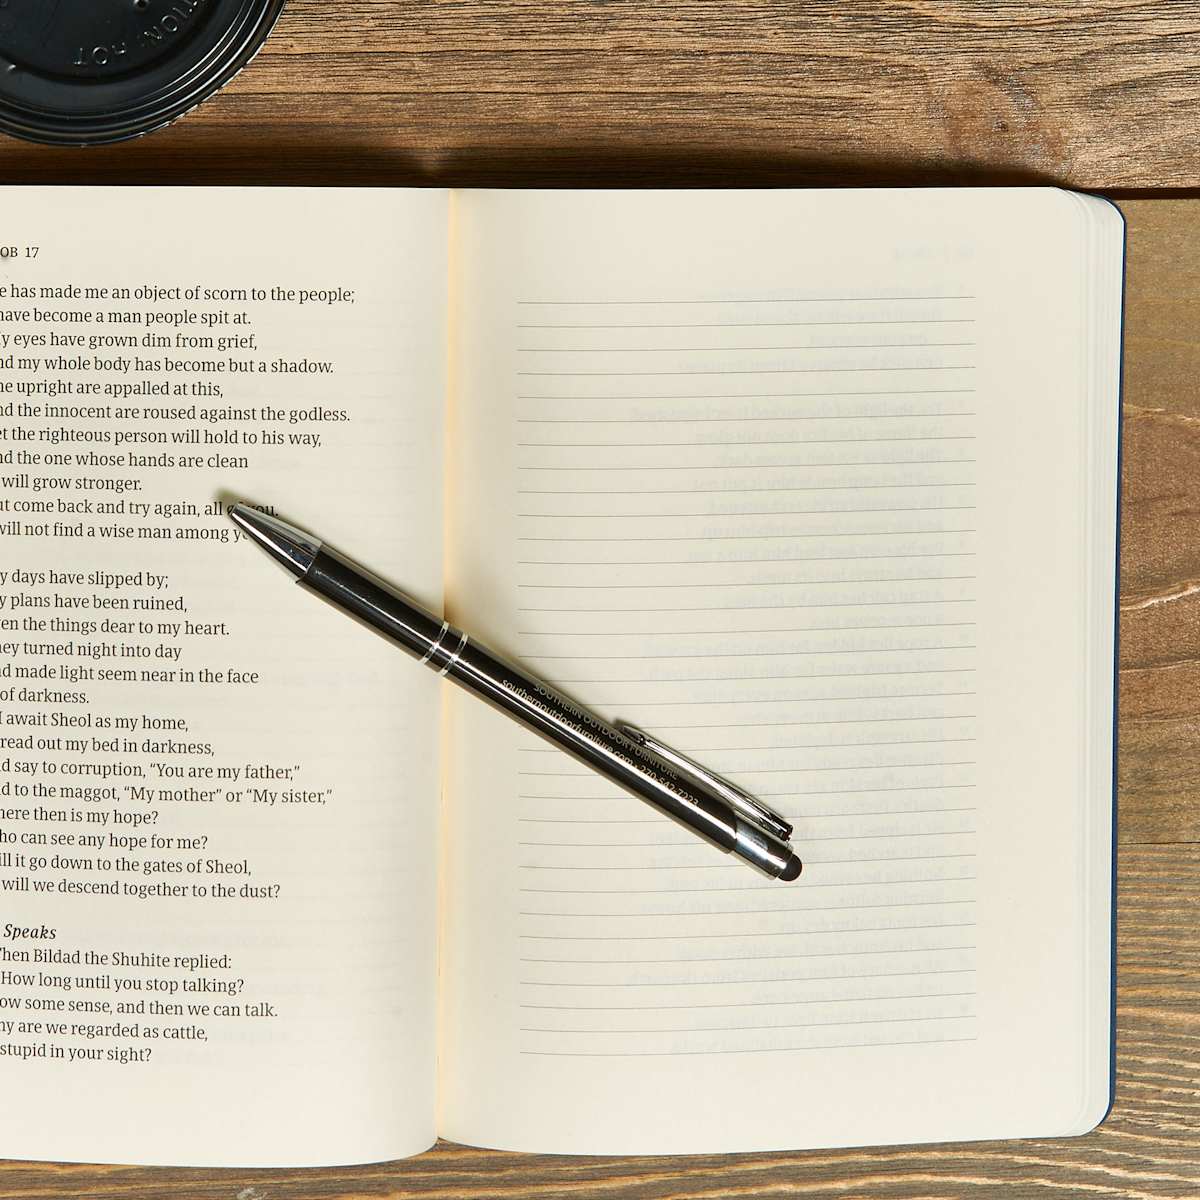 TION HOT
OB 17
e has made me an object of scorn to the people;
have become a man people spit at.
y eyes have grown dim from grief,
nd my whole body has become but a shadow.
he upright are appalled at this,
nd the innocent are roused against the godless.
et the righteous person will hold to his way,
nd the one whose hands are clean
will grow stronger.
ut come back and try again, all of you.
will not find a wise man among yo
y days have slipped by;
y plans have been ruined,
en the things dear to my heart.
hey turned night into day
nd made light seem near in the face
of darkness.
I await Sheol as my home,
read out my bed in darkness,
d say to corruption, “You are my father,”
d to the maggot, “My mother” or “My sister,”
here then is my hope?
ho can see any hope for me?
ill it go down to the gates of Sheol,
will we descend together to the dust?
Speaks
Then Bildad the Shuhite replied:
How long until you stop talking?
ow some sense, and then we can talk.
hy are we regarded as cattle,
stupid in your sight?
SOUTHERN OUTDOOR FURNITURE
southernoutdoorfurniture.com · 270-542-7223